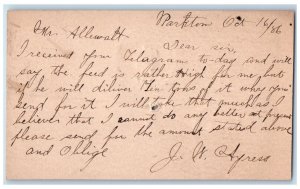 Parkton Oct 16/86
Mr. Allewalt
Dear sir,
I received your Telegram to day and will
say the feed is rather high for me, but
if he will deliver ten tons of it when you
send for it I will take that much as I
believe that I cannot do any better at
please send for the amount stated above
and Oblige J. W. Ayress